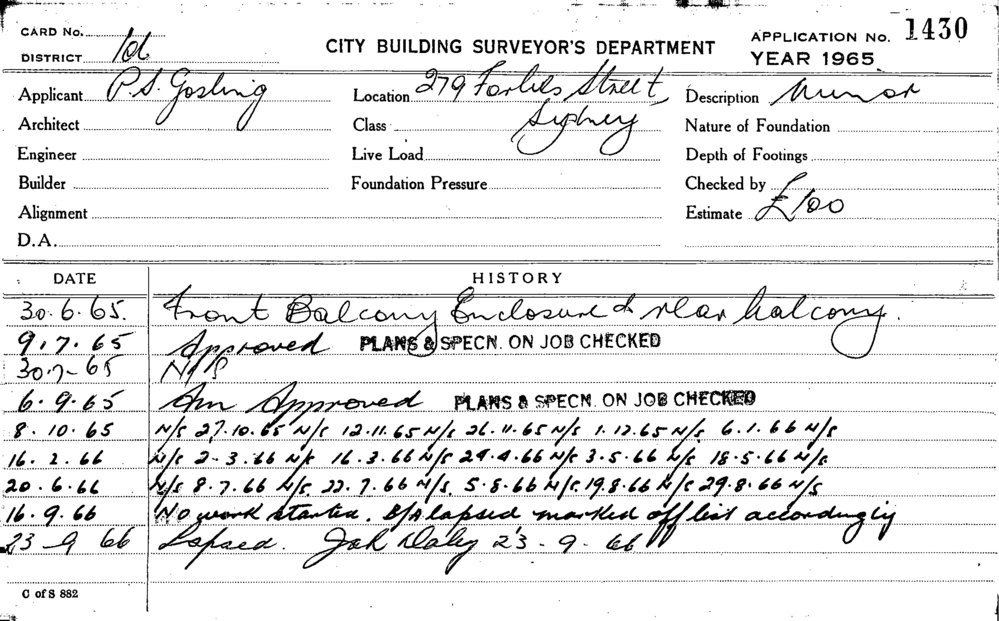 CARD No.
DISTRICT 10b
CITY BUILDING SURVEYOR'S DEPARTMENT
APPLICATION No. 1430
YEAR 1965
Applicant P.S. Gosling
Location 279 Forbes Street,
Sydney
Description Minor
Architect
Class
Nature of Foundation
Engineer
Live Load
Depth of Footings
Builder
Foundation Pressure
Checked by
Alignment
Estimate £100
D.A.
DATE HISTORY
30.6.65. Front Balcony Enclosure & rear balcony.
9.7.65 Approved PLANS & SPECN. ON JOB CHECKED
30.7-65 N/S
6.9.65 Am Approved PLANS & SPECN. ON JOB CHECKED
8.10.65 N/S 27.10.65 N/S 12.11.65 N/S 26.11.65 N/S 1.12.65 N/S 6.1.66 N/S
16.2.66 N/S 2-3.66 N/S 16.3.66 N/S 29.4.66 N/S 3.5.66 N/S 18.5.66 N/S
20.6.66 N/S 8.7.66 N/S. 22.7.66 N/S. 5.8.66 N/S. 19.8.66 N/S 29.8.66 N/S
16.9.66 No work started. B/A lapsed marked off list accordingly
23-9 66 Lapsed. Daley 23-9-66
C of S 882